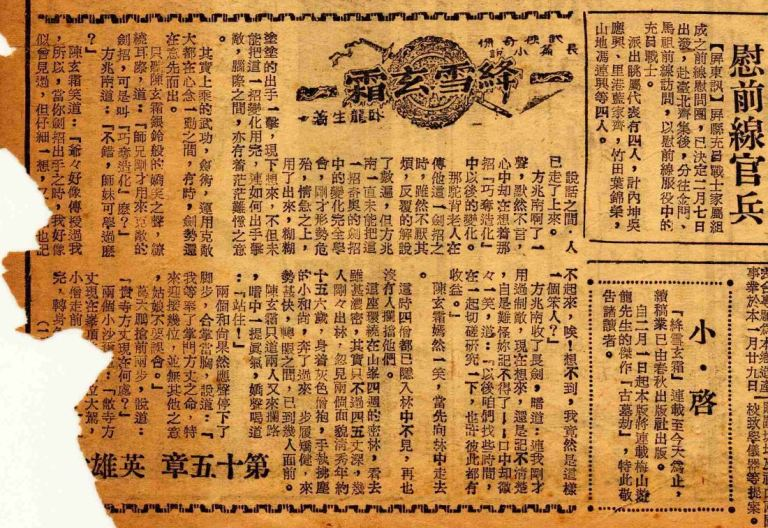 慰前線官兵
【屏東訊】屏縣充員戰士家屬組
成之前線慰問團，已決定二月七日
出發，赴臺北齊集後，分往金門、
馬祖前線訪問，以慰前線服役中的
充員戰士。
派出眷屬代表有四人，計內埔吳
應興、里港藍家齊，竹田葉錦榮，
山地馮連興等四人。
事業於本一月廿九日
校致學儀器等提案。
小・啓
「絳雪玄霜」連載至今天為止，
續稿業已由春秋出版社出版。
自二月一日起本版將連載梅山遊
龍先生的傑作「古墓劫」，特此敬
告諸讀者。
長篇武俠奇情小說
絳雪玄霜
臥龍生著
說話之間，人
已走了上來。
方兆南啊了一
聲，默然不言，
心中却在想着那
招「巧奪造化」
中以後的變化。
那駝背老人在
傳他這一劍招之
時，雖然不厭其
煩，反覆的解說
了數遍，但方兆
南一直未能把這
一招奇奧的劍招
中的變化完全學
會，剛才形勢危
殆，情急之上，
用了出來，糊糊
塗塗的出手一擊，現下想來，不但未
能把這一招變化用完，連如何出手擊
敵，腦際之間，亦有着茫茫難憶之意
。
其實上乘的武功，劍術，運用克敵
大都在心念一動之間，有時，劍勢還
在意先而出。
只聽陳玄霜銀鈴般的嬌笑之聲，繚
繞耳際，道：「師兄剛才用來克敵的
劍招，可是叫「巧奪造化」麼？」
方兆南道：「不錯，師妹可學過麼
？」
陳玄霜笑道：「爺爺好像傳授過我
，所以，當你劍招出手之時，我好像
似曾見過，但仔細一想，
不起來，唉！想不到，我竟然是這樣
一個笨人？」
方兆南收了長劍，暗道：連我剛才
用過制敵，現在想來，還是記不清楚
，自是難怪妳記不得了！口中却微
微一笑，道：「以後咱們找些時間，
在一起切磋研究一下，也許彼此都有
收益。」
陳玄霜嫣然一笑，當先向林中走去
。
這時四僧都已隱入林中不見，再也
沒有人攔擋他們。
這座環繞在山峯四週的密林，看去
雖甚濃密，其實只不過四五丈深，幾
人剛々出林，忽見兩個面貌清秀年約
十五六歲，身着灰色僧袍，手執拂塵
的小和尚，奔了過來，步履矯健，來
勢甚快，轉眼之間，已到幾人面前。
陳玄霜只道兩人又來攔路
，暗中一提真氣，嬌聲喝道
：「站住！」
兩個和尚果然應聲停下了
脚步，合掌當胸，說道：「
我等奉了掌門方丈之命，特
來迎接幾位，並無其他之意
，姑娘不要誤會。」
葛天鵬搶前兩步，說道：
「貴寺方丈現在何處？」
兩個小沙彌道：「敝寺方
丈現在峯頂
小僧走前
完，轉身
第十五章　英雄